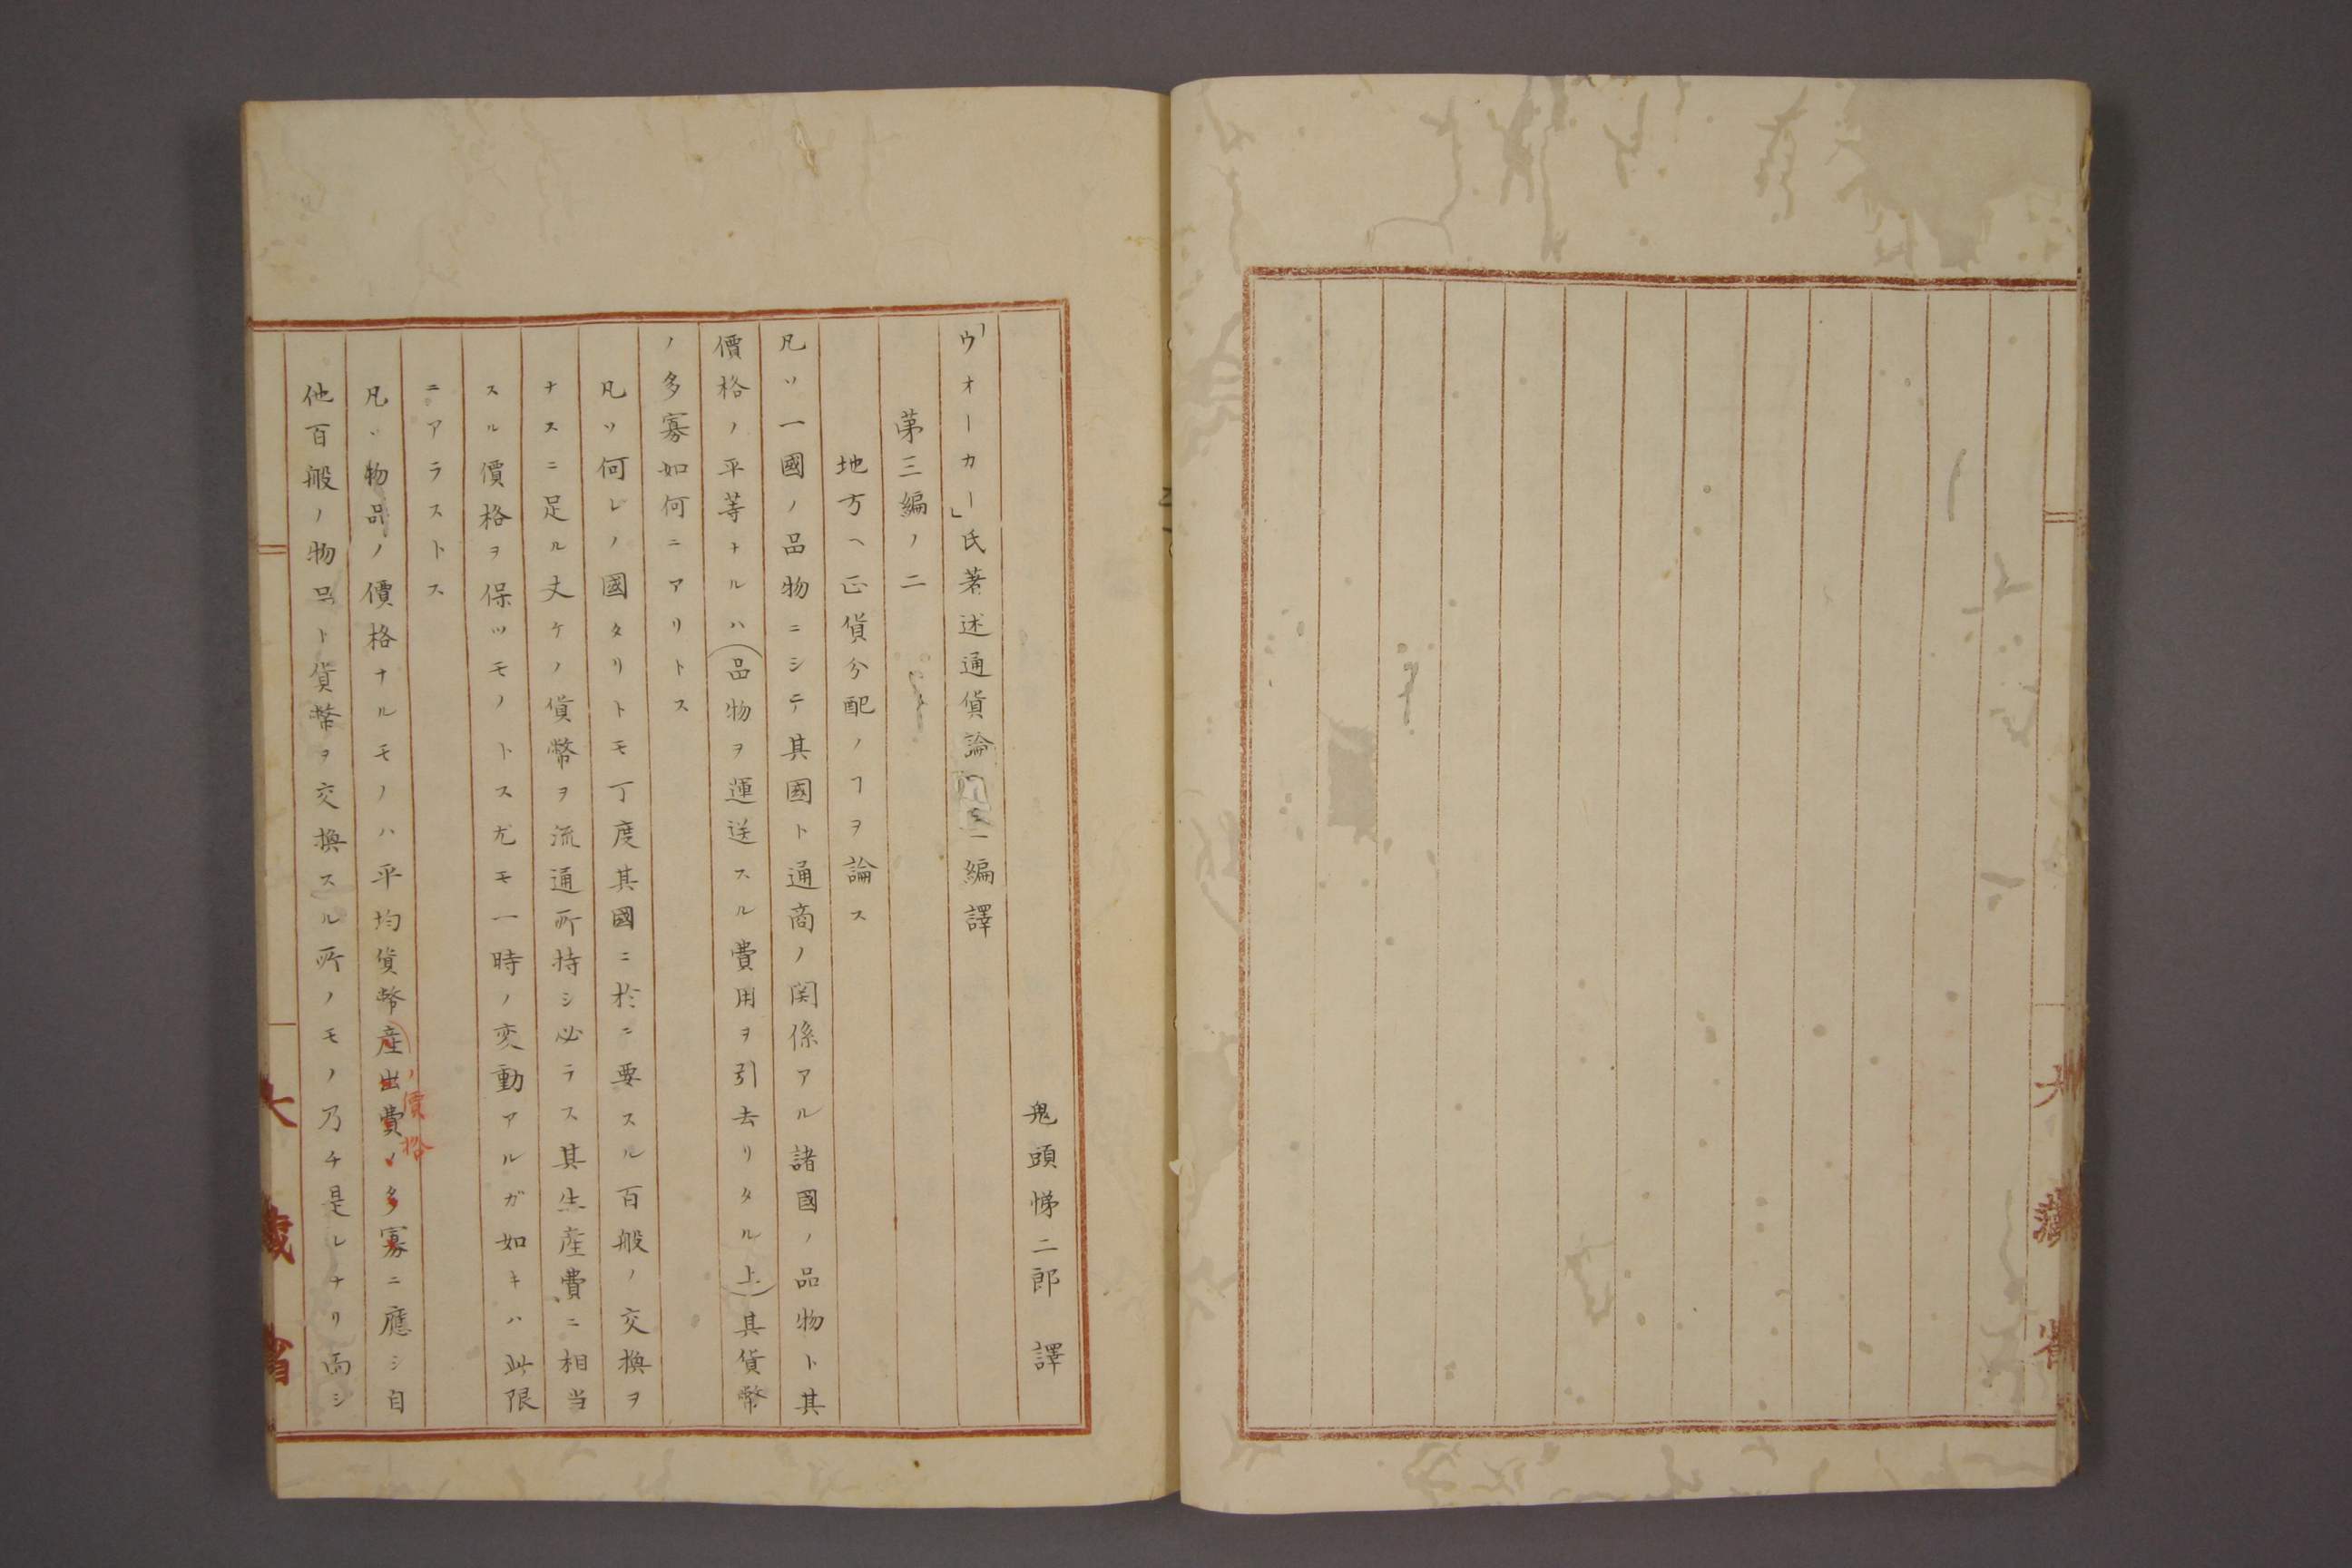 大藏省
鬼頭悌二郎 譯
「ウォーカー」氏著述通貨論 二編譯
第三編ノ二
地方ヘ正貨分配ノヿヲ論ス
凡ソ一國ノ品物ニシテ其國ト通商ノ関係アル諸國ノ品物ト其
價格ノ平等ナルハ(品物ヲ運送スル費用ヲ引去リタル上)其貨幣
ノ多寡如何ニアリトス
凡ソ何レノ國タリトモ丁度其國ニ於ニ要スル百般ノ交換ヲ
ナスニ足ル丈ケノ貨幣ヲ流通所持シ必ラス其生産費ニ相当
スル價格ヲ保ツモノトス尤モ一時ノ変動アルガ如キハ此限
ニアラストス
凡ソ物品ノ價格ナルモノハ平均貨幣産出費ノ多寡ニ應シ自
ノ價格
他百般ノ物品ト貨幣ヲ交換スル所ノモノ乃チ是レナリ而シ
大藏省